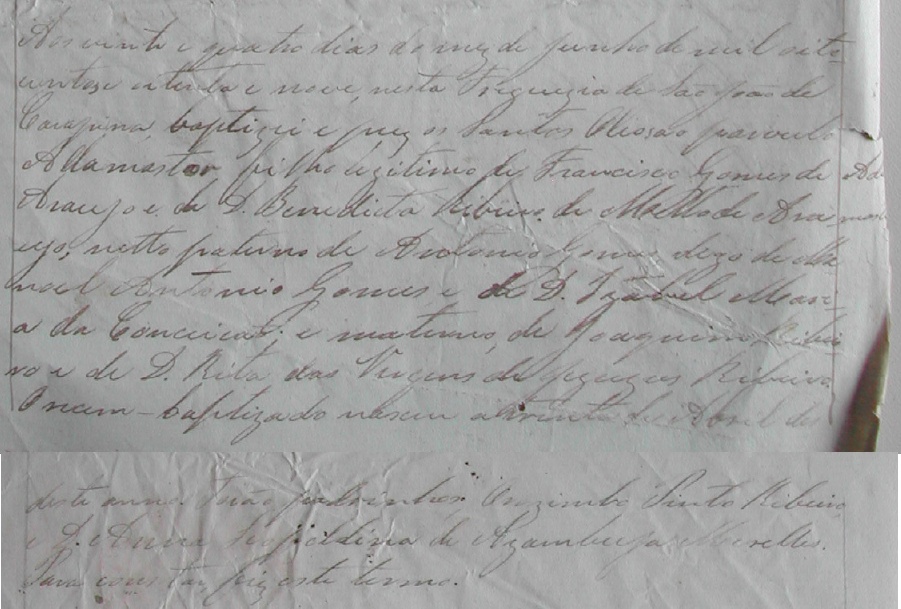 Aos vinte e quatro dias do mez de junho de mil oito
centos e oitenta e nove, nesta Freguezia de São João de
Carapina, baptizei e puz os Santos Oleos ao parvulo
Adamastor filho legitimo de Francisco Gomes de
Araujo e de D. Benedicta Ribeiro de Mello de Ara
ujo; netto paterno de Antonio Gomes de Ma
noel Antonio Gomes e de D. Izabel Mari-
a da Conceicão; e materno, de Joaquim Ribei
ro e de D. Rita das Virgens de Ribeiro
O recem-baptizado nasceu a trinta de Abril de
deste anno. Pinto Ribeiro,
e D. Anna Leopoldina de Azambuja Meirelles.
Para constar, fiz este termo.